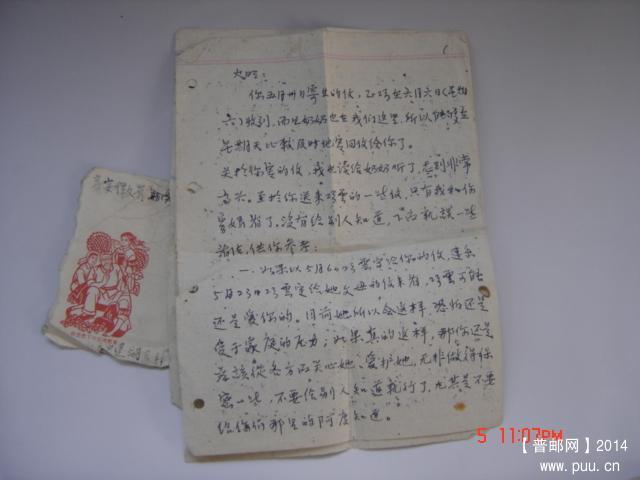 1
火明：
你五月卅日寄出的信，已巧在六月六日(星期
六)收到，而且奶奶也在我们这里，所以能够在
星期天比较及时地写回信给你了。
关于你写的信，我也读给奶奶听了，感到非常
高兴。至于你送来巧雲的一些信，只有我和你
妈看了。没有给别人知道，下面就谈一些
看法，供你参考：
一、如果以5月6日巧雲写给你的信，连系
5月23日巧雲写给她父母的信来看，巧雲可能
还是爱你的。目前她所以会这样，恐怕还是
受于家庭的压力；如果真的这样，那你还是
应该从各方面关心她、爱护她，无非做得保
密一些，不要给别人知道就行了，尤其是不要
给你们那里的阿度知道。
5 11:07PM
【普邮网】2014
www.puu.cn